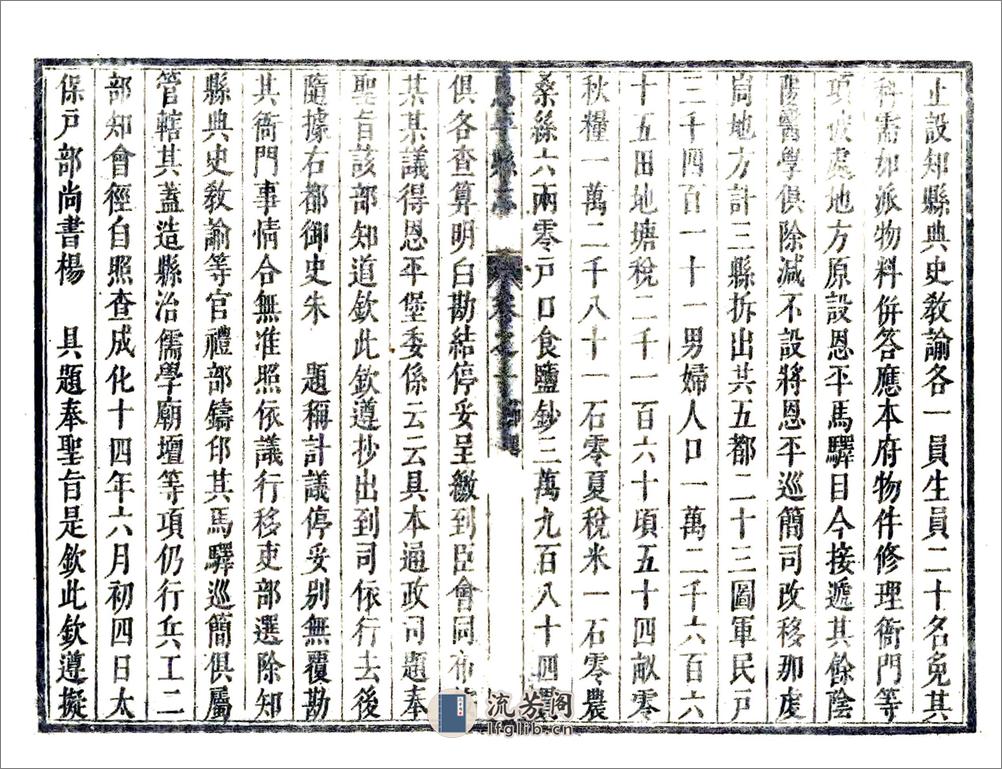 止設知縣典史敎諭各一員生員二十名免其
科需如派物料併答應本府物件修理衙門等
項彼處地方原設恩平馬驛目今接遞其餘陰
陽醫學俱除減不設將恩平巡簡司改移那虔
崗地方計三縣拆出共五都二十三圖軍民戸
三千四百一十一男婦人口一萬二千六百六
十五田地塘稅二千一百六十頃五十四畝零
秋糧一萬二千八十一石零夏稅米一石零農
桑絲六兩零戸口食鹽鈔三萬九百八十四貫
恩平縣志 卷之十
俱各查算明白勘結停妥呈繳到臣會同布
某某議得恩平堡委係云云具本通政司題奉
聖旨該部知道欽此欽遵抄出到司依行去後
隨據右都御史朱 題稱計議停妥別無覆勘
其衙門事情合無准照依議行移吏部選除知
縣典史敎諭等官禮部鑄印其馬驛巡簡俱屬
管轄其蓋造縣治儒學廟壇等項仍行兵工二
部知會徑自照查成化十四年六月初四日太
保戸部尚書楊 具題奉聖旨是欽此欽遵擬
流芳閣
lfglib.cn